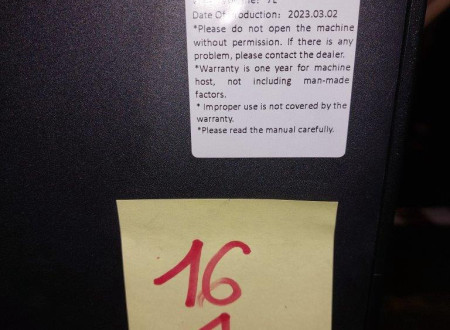 Date Of Production: 2023.03.02
*Please do not open the machine
without permission. If there is any
problem, please contact the dealer.
*Warranty is one year for machine
host, not including man-made
factors.
* Improper use is not covered by the
warranty.
*Please read the manual carefully.
16